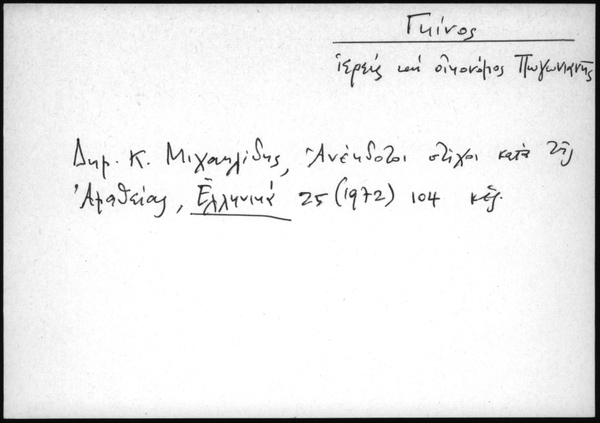 Γκίνος
ἱερεὺς καὶ οἰκονόμος Πωγωνιανῆς
Δημ. Κ. Μιχαηλίδης, Ἀνέκδοτοι στίχοι κατὰ τῆς
Ἀμαθείας, Ἑλληνικά 25 (1972) 104 κἑξ.